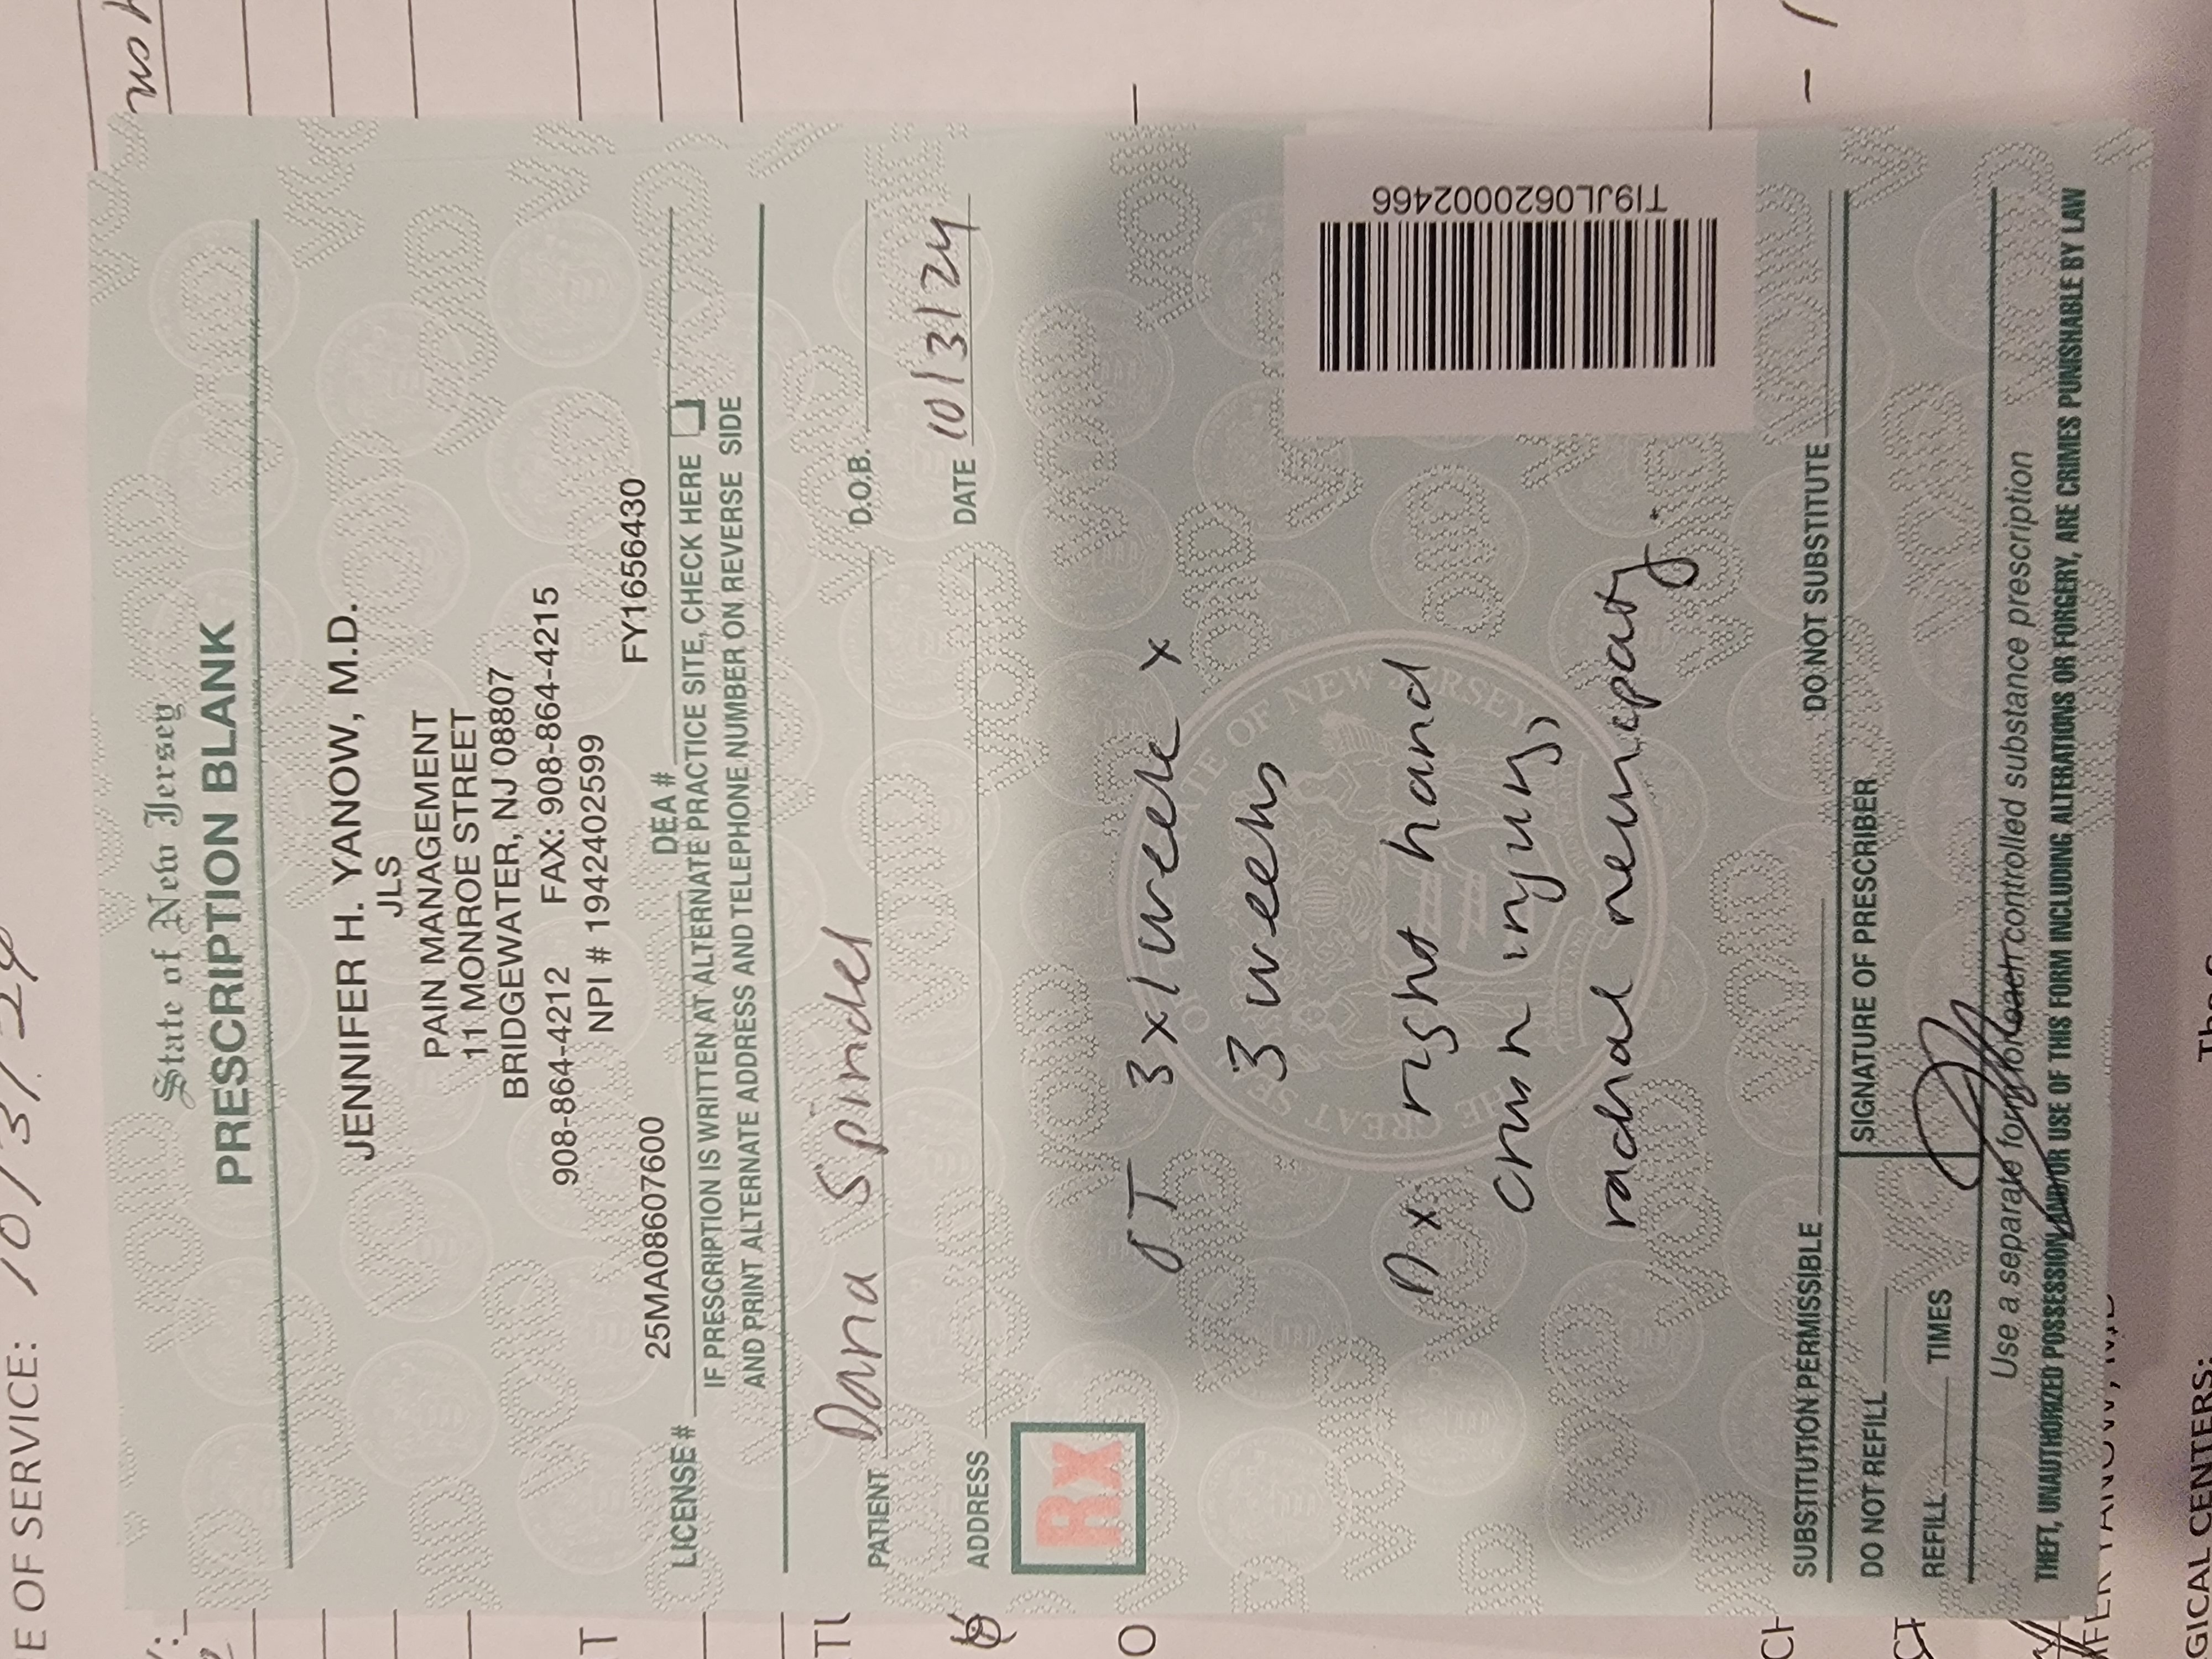 E OF SERVICE: 10/3/24
State of New Jersey
PRESCRIPTION BLANK
JENNIFER H. YANOW, M.D.
JLS
PAIN MANAGEMENT
11 MONROE STREET
BRIDGEWATER, NJ 08807
908-864-4212 FAX: 908-864-4215
NPI # 1942402599
LICENSE # 25MA08607600 DEA # FY1656430
IF PRESCRIPTION IS WRITTEN AT ALTERNATE PRACTICE SITE, CHECK HERE
AND PRINT ALTERNATE ADDRESS AND TELEPHONE NUMBER ON REVERSE SIDE
PATIENT Dana Spindel D.O.B.
ADDRESS DATE 10/3/24
Rx
OT 3x/week x
3 weeks
Dx: right hand
crush injury,
radial neuropathy.
TI9JL0620002466
SUBSTITUTION PERMISSIBLE DO NOT SUBSTITUTE
DO NOT REFILL SIGNATURE OF PRESCRIBER
REFILL TIMES
Use a separate form for each controlled substance prescription
THEFT, UNAUTHORIZED POSSESSION AND/OR USE OF THIS FORM INCLUDING ALTERATIONS OR FORGERY, ARE CRIMES PUNISHABLE BY LAW
IFER YANOW, MD
GICAL CENTERS: